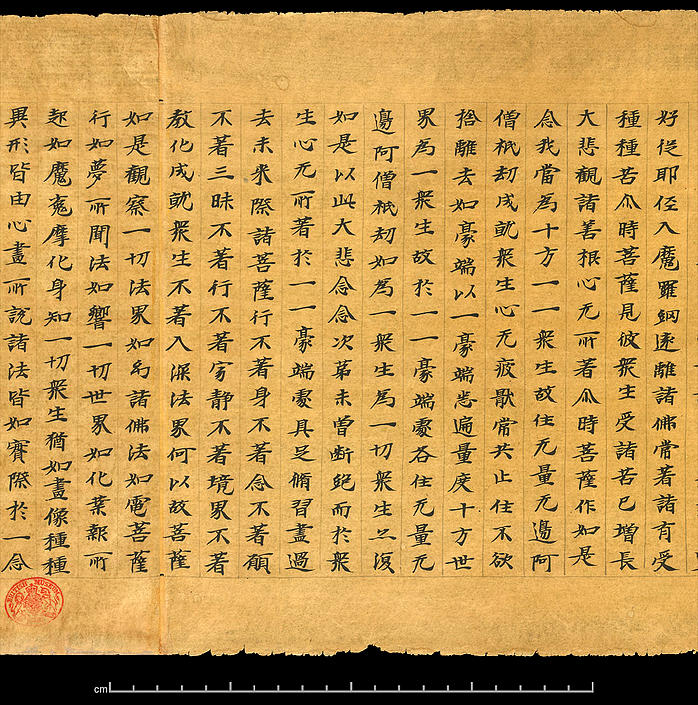 好從耶俓入魔羅網遠離諸佛常著諸有受
種種苦尒時菩薩見彼衆生受諸苦已增長
大悲觀諸善根心无所著尒時菩薩作如是
念我當為十方一一衆生故住无量无邊阿
僧祇劫成就衆生心无疲猒常共止住不欲
捨離去如豪端以一豪端悉遍量度十方世
界為一衆生故於一一豪端處各住无量无
邊阿僧祇劫如為一衆生為一切衆生亦復
如是以此大悲念念次第未曽斷絕而於衆
生心无所著於一一豪端處具足脩習盡過
去未來際諸菩薩行不著身不著念不著願
不著三昧不著行不著寂靜不著境界不著
教化成就衆生不著入深法界何以故菩薩
如是觀察一切法界如幻諸佛法如電菩薩
行如夢所聞法如響一切世界如化業報所
起如魔𡨥摩化身知一切衆生猶如畫像種種
異形皆由心畫所說諸法皆如實際於一念
BRITISH MUSEUM
cm